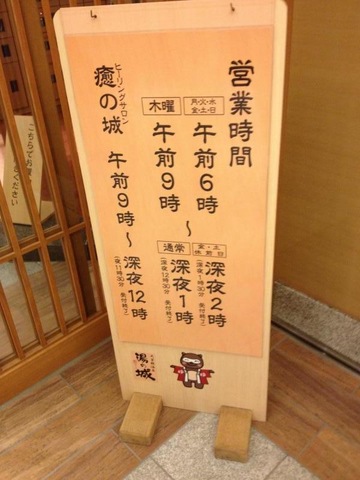 営業時間
月・火・水
金・土・日
午前6時
木曜
午前9時
～
金・土
休前日
深夜2時
(深夜1時30分 受付終了)
通常
深夜1時
(深夜12時30分 受付終了)
ヒーリングサロン
癒の城
午前9時～深夜12時
(夜11時30分 受付終了)
湯の城
こちらでお履
ください